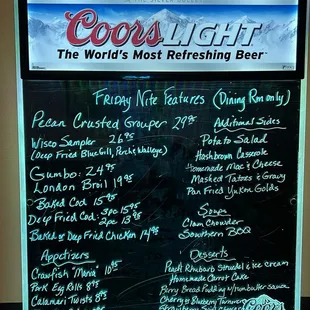 Coors LIGHT
The World's Most Refreshing Beer
Friday Nite Features (Dining Rm only)
Pecan Crusted Grouper 29.95
Wisco Sampler 26.95
(Deep Fried Blue Gill, Perch & Walleye)
Gumbo: 24.95
London Broil 19.95
Baked Cod 15.95
Deep Fried Cod: 3pc 15.95
2pc 13.95
Baked or Deep Fried Chicken 14.95
Appetizers
Crawfish Maria 10.95
Pork Egg Rolls 8.95
Calamari Twists 8.95
Additional Sides
Potato Salad
Hashbrown Casserole
Homemade Mac & Cheese
Mashed Tatoes & Gravy
Pan Fried Yukon Golds
Soups
Clam Chowder
Southern BBQ
Desserts
Peach Rhubarb Strudel & ice cream
Homemade Carrot Cake
Berry Bread Pudding w/ rum butter sauce
Cherry or Blueberry Turnover